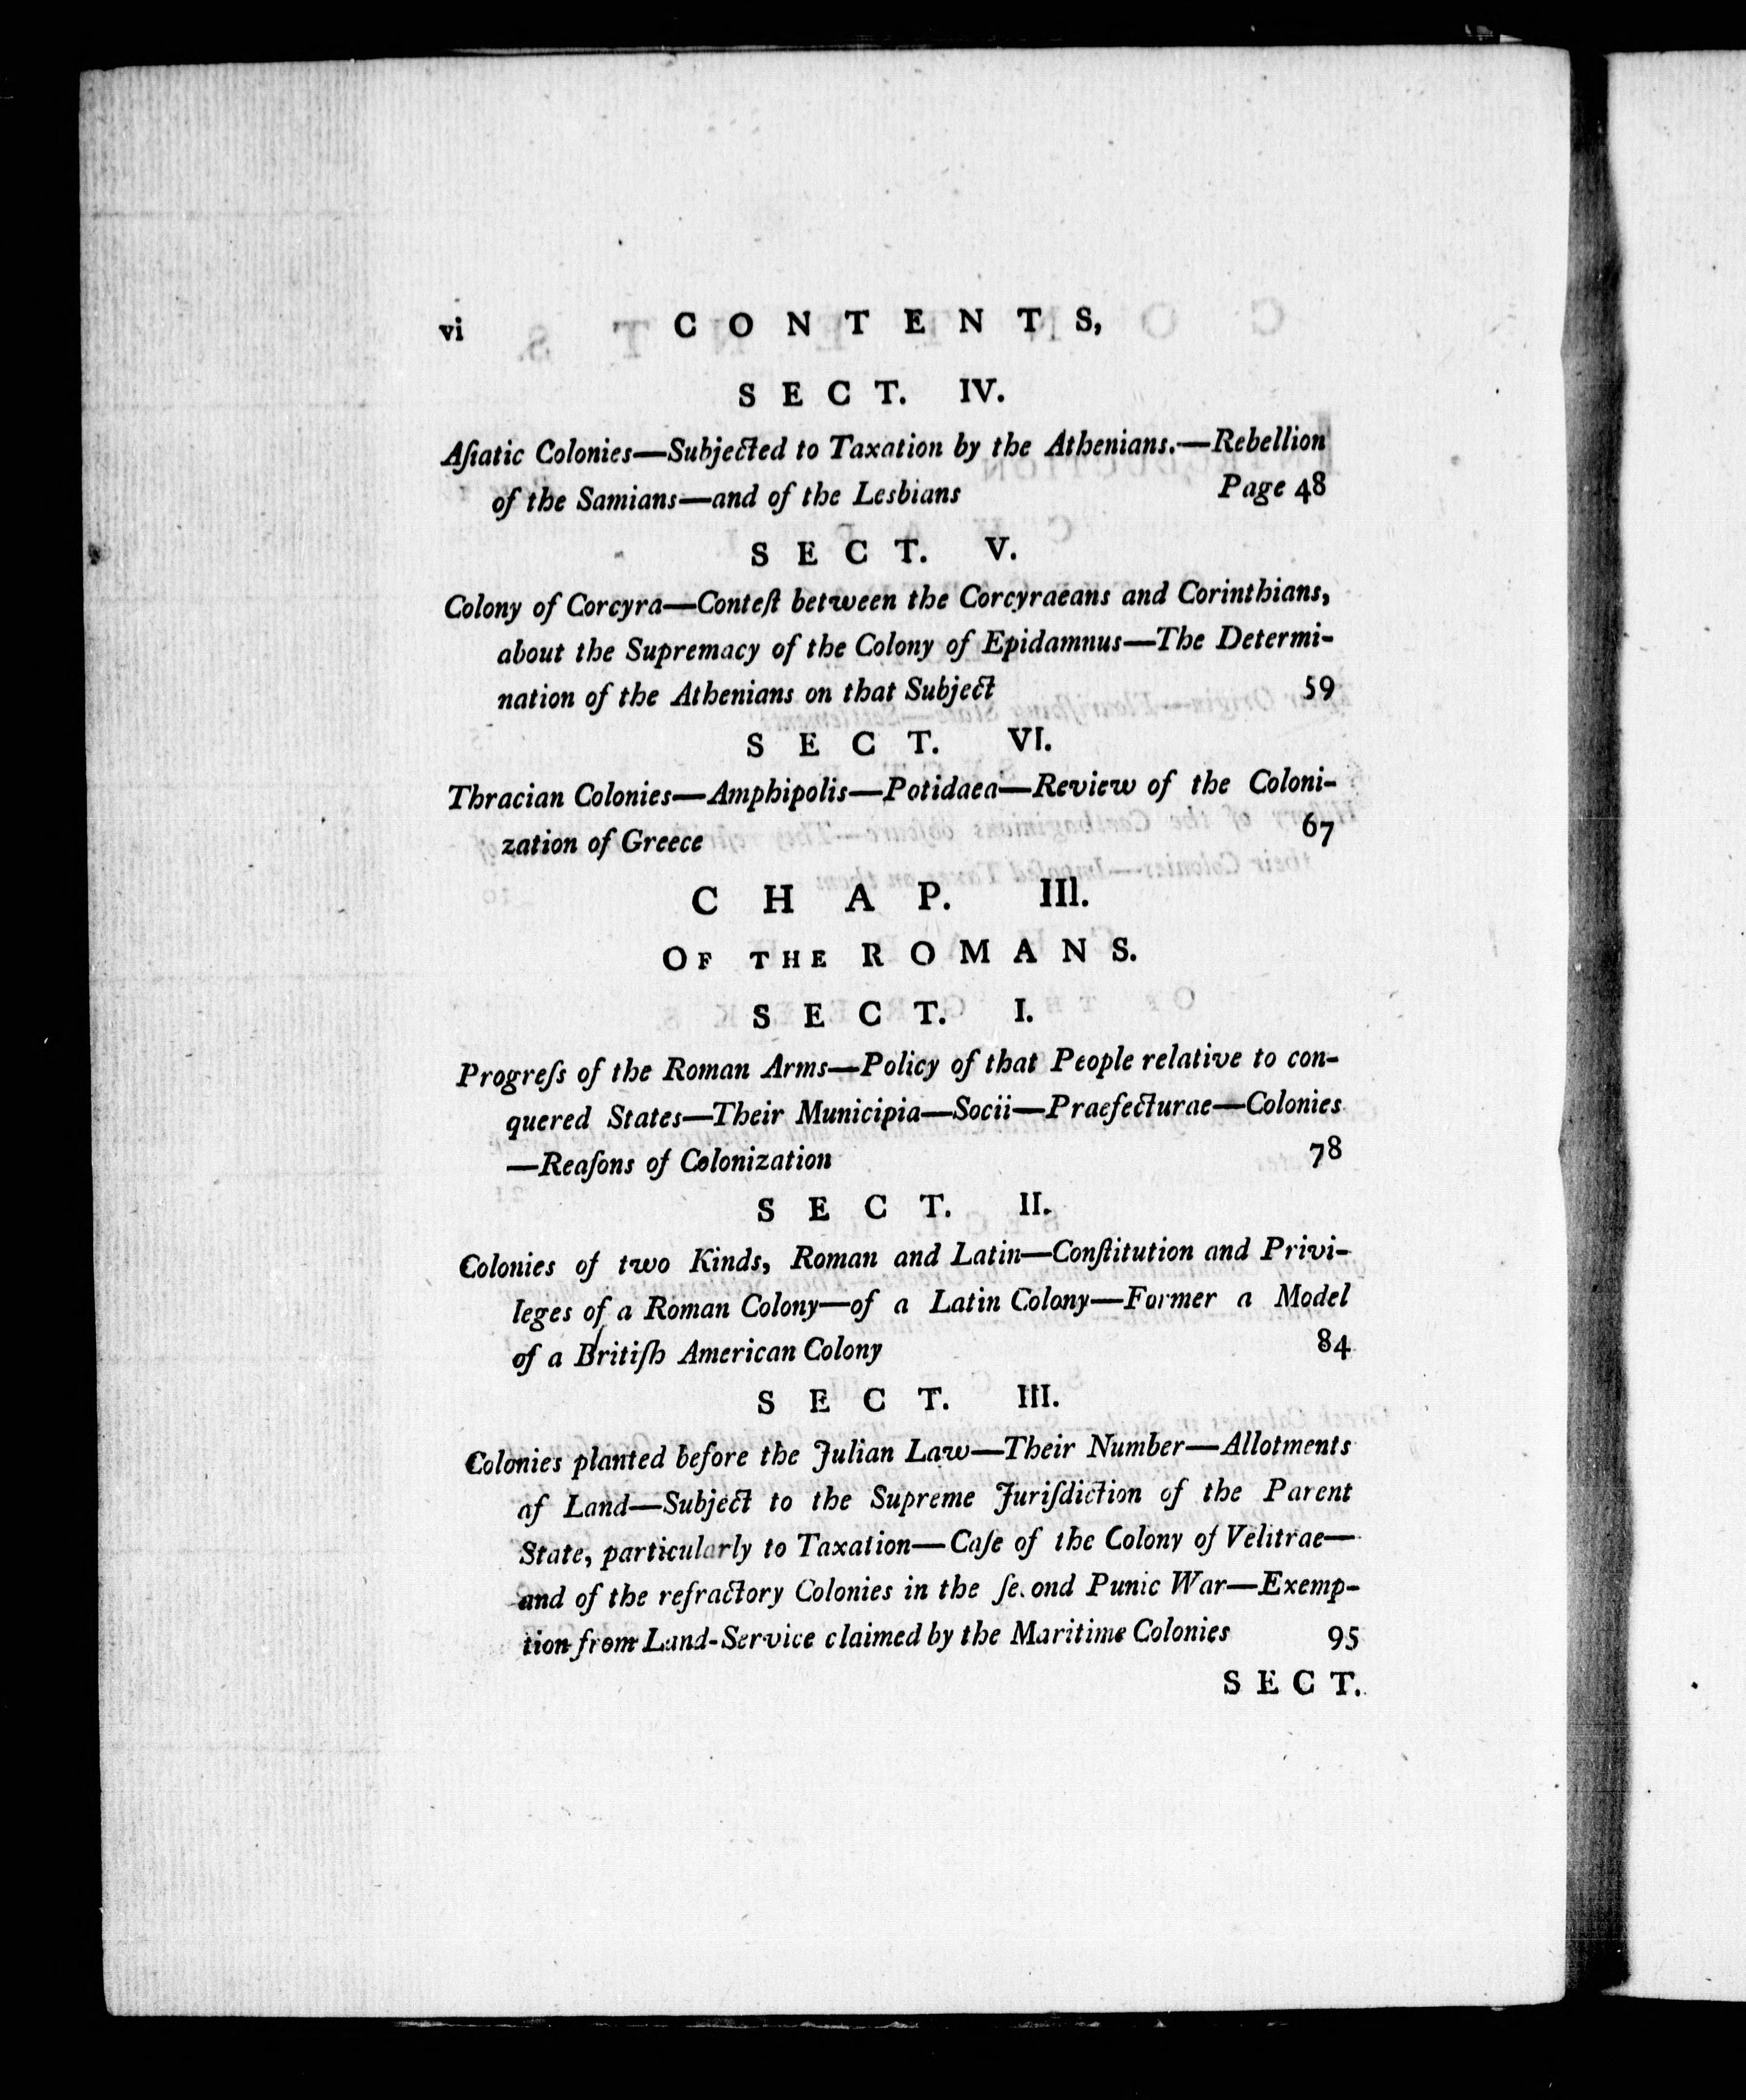 vi CONTENTS,
SECT. IV.
Aſiatic Colonies—Subjected to Taxation by the Athenians.—Rebellion
of the Samians—and of the Lesbians Page 48
SECT. V.
Colony of Corcyra—Conteſt between the Corcyraeans and Corinthians,
about the Supremacy of the Colony of Epidamnus—The Determi-
nation of the Athenians on that Subject 59
SECT. VI.
Thracian Colonies—Amphipolis—Potidaea—Review of the Coloni-
zation of Greece 67
CHAP. III.
OF THE ROMANS.
SECT. I.
Progreſs of the Roman Arms—Policy of that People relative to con-
quered States—Their Municipia—Socii—Praefecturae—Colonies
—Reaſons of Colonization 78
SECT. II.
Colonies of two Kinds, Roman and Latin—Conſtitution and Privi-
leges of a Roman Colony—of a Latin Colony—Former a Model
of a Britiſh American Colony 84
SECT. III.
Colonies planted before the Julian Law—Their Number—Allotments
of Land—Subject to the Supreme Juriſdiction of the Parent
State, particularly to Taxation—Caſe of the Colony of Velitrae—
and of the refractory Colonies in the ſecond Punic War—Exemp-
tion from Land-Service claimed by the Maritime Colonies 95
SECT.